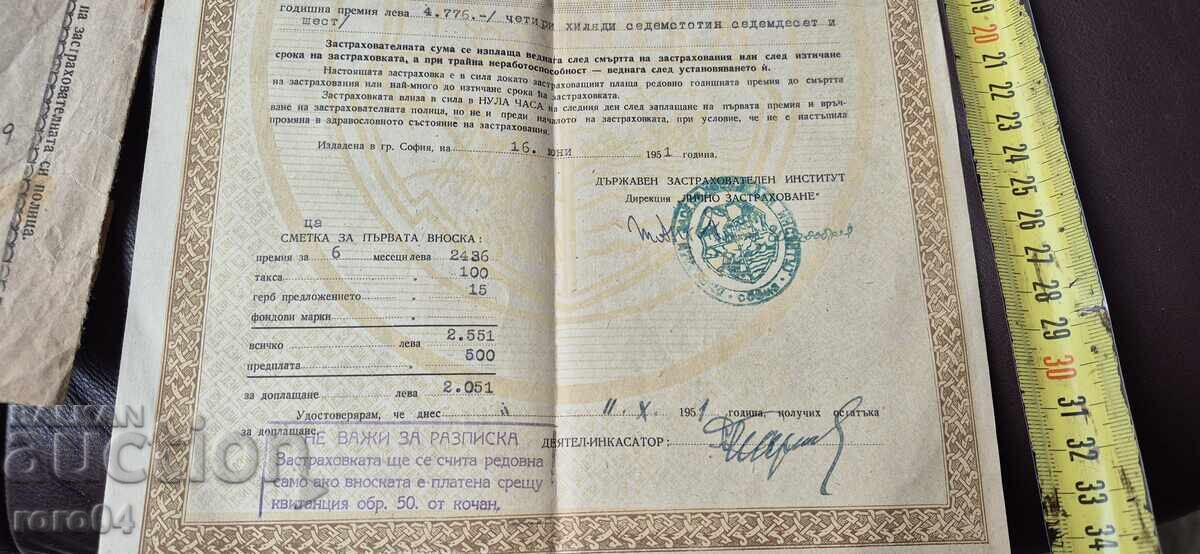 на застрахователната си полица.
9
годишна премия лева 4.776.-/ четири хиляди седемстотин седемдесет и
шест/
Застрахователната сума се изплаща веднага след смъртта на застрахования или след изтичане
срока на застраховката, а при трайна неработоспособност — веднага след установяването ѝ.
Настоящата застраховка е в сила докато застраховащият плаща редовно годишната премия до смъртта
на застрахования или най-много до изтичане срока на застраховката.
Застраховката влиза в сила в НУЛА ЧАСА на следния ден след заплащане на първата премия и връч-
ване на застрахователната полица, но не и преди началото на застраховката, при условие, че не е настъпила
промяна в здравословното състояние на застрахования.
Издадена в гр. София, на 16. юни 1951 година.
ДЪРЖАВЕН ЗАСТРАХОВАТЕЛЕН ИНСТИТУТ
Дирекция "ЛИЧНО ЗАСТРАХОВАНЕ"
ца
СМЕТКА ЗА ПЪРВАТА ВНОСКА:
премия за 6 месеци лева 2436
такса " 100
герб предложението " 15
фондови марки "
всичко лева 2.551
предплата " 500
за доплащане лева 2.051
Удостоверявам, че днес 11.X. 1951 година, получих остатъка
за доплащане.
ДЕЯТЕЛ-ИНКАСАТОР:
НЕ ВАЖИ ЗА РАЗПИСКА
Застраховката ще се счита редовна
само ако вноската е платена срещу
квитанция обр. 50. от кочан.
BALKAN
auction
roro04
19
20
21
22
23
24
25
26
27
28
29
30
31
32
33
34